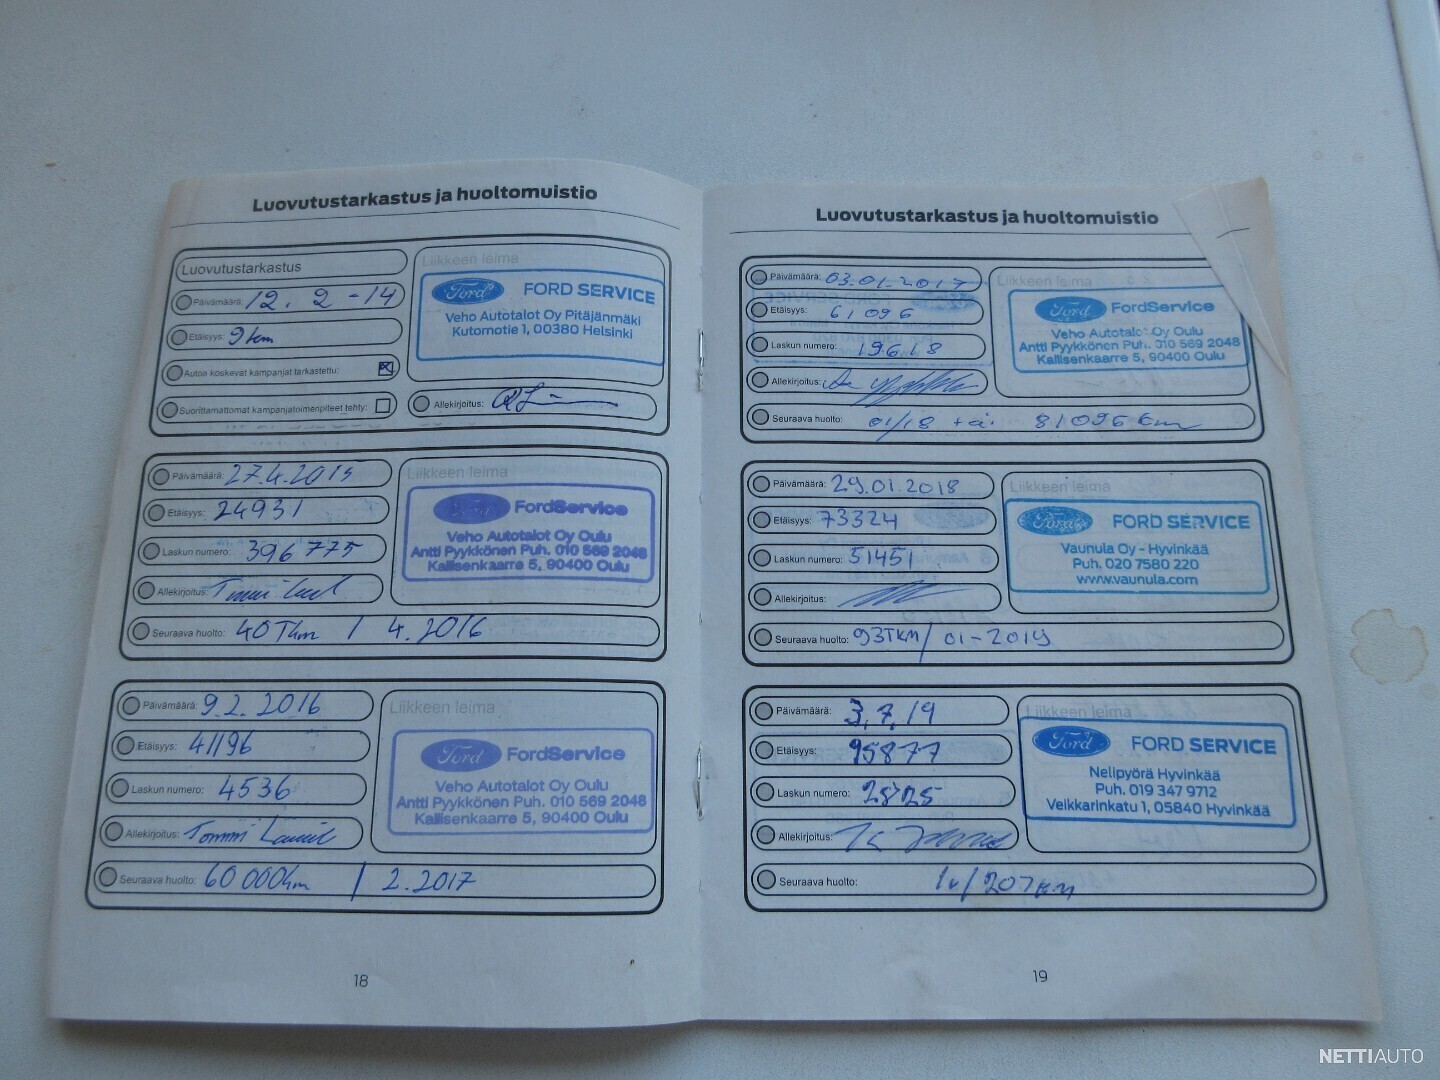 Luovutustarkastus ja huoltomuistio
Luovutustarkastus
Päivämäärä: 12.2-14
Etäisyys: 9km
Autoa koskevat kampanjat tarkastettu:
Suorittamattomat kampanjatoimenpiteet tehty:
Liikkeen leima
Ford FORD SERVICE
Veho Autotalot Oy Pitäjänmäki
Kutomotie 1, 00380 Helsinki
Allekirjoitus:
Päivämäärä: 27.4.2015
Etäisyys: 24931
Laskun numero: 396 775
Allekirjoitus:
Seuraava huolto: 40Tkm / 4.2016
Liikkeen leima
Ford FordService
Veho Autotalot Oy Oulu
Antti Pyykkönen Puh. 010 569 2048
Kallisenkaarre 5, 90400 Oulu
Päivämäärä: 9.2.2016
Etäisyys: 41196
Laskun numero: 4536
Allekirjoitus: Tommi
Seuraava huolto: 60 000km / 2.2017
Liikkeen leima
Ford FordService
Veho Autotalot Oy Oulu
Antti Pyykkönen Puh. 010 569 2048
Kallisenkaarre 5, 90400 Oulu
18
Luovutustarkastus ja huoltomuistio
Päivämäärä: 03.01.2017
Etäisyys: 61096
Laskun numero: 19618
Allekirjoitus:
Seuraava huolto: 01/18 t.ä. 81096 km
Liikkeen leima
Ford FordService
Veho Autotalot Oy Oulu
Antti Pyykkönen Puh. 010 569 2048
Kallisenkaarre 5, 90400 Oulu
Päivämäärä: 29.01.2018
Etäisyys: 73324
Laskun numero: 51451
Allekirjoitus:
Seuraava huolto: 93TKM/ 01-2019
Liikkeen leima
Ford FORD SERVICE
Vaunula Oy - Hyvinkää
Puh. 020 7580 220
www.vaunula.com
Päivämäärä: 3.7.19
Etäisyys: 95877
Laskun numero: 2825
Allekirjoitus:
Seuraava huolto: 1v/20Tkm
Liikkeen leima
Ford FORD SERVICE
Nelipyörä Hyvinkää
Puh. 019 347 9712
Veikkarinkatu 1, 05840 Hyvinkää
19
NETTIAUTO